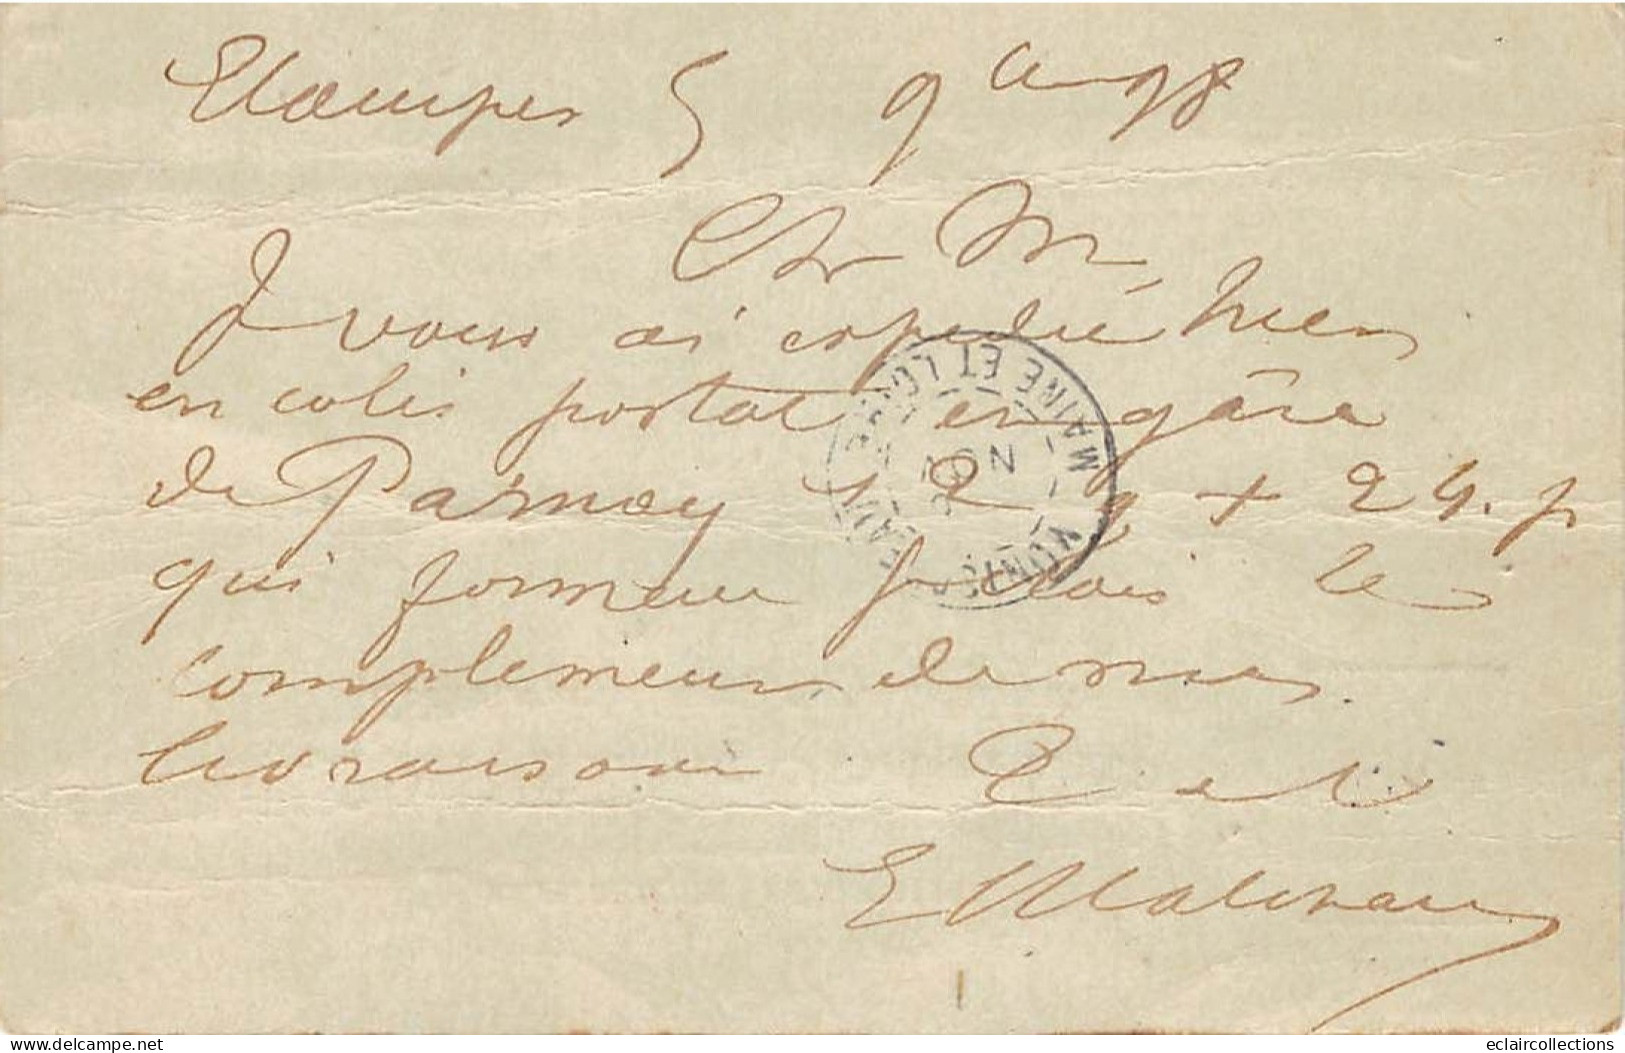 Etampes 5 9bre 98
Chr M,
Je vous ai expedié hier
en colis postal en gâre
de Parnay 12 + 24. p
qui forment je crois le
complement de mes
livraisons
E Malivau
MAINE ET LOIRE
NOV
delcampe.net
eclaircollections